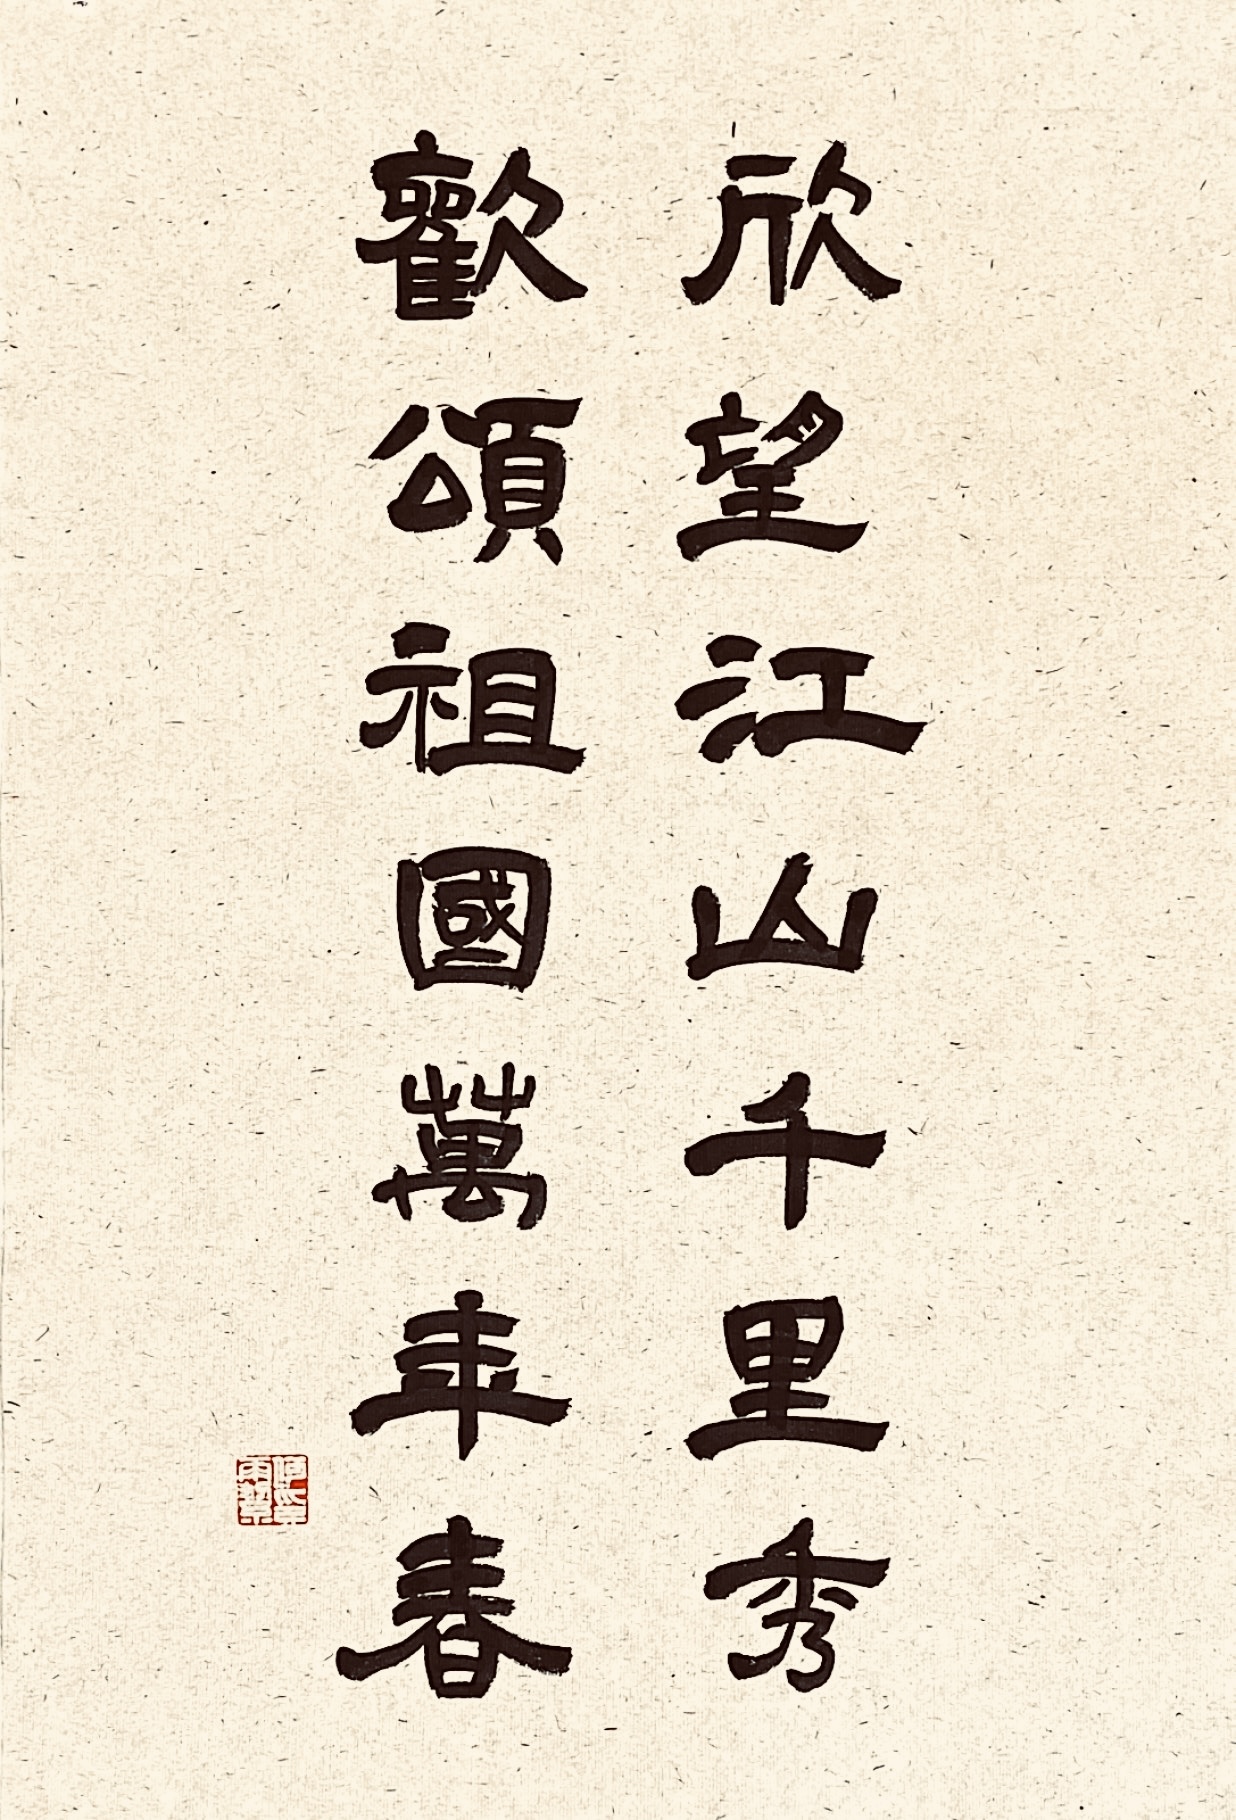 欣望江山千里秀
歡頌祖國萬年春